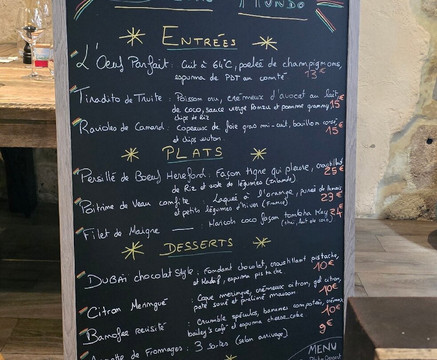 ENTRÉES
L'Oeuf Parfait : Cuit à 64°C, poêlée de champignons,
espuma de PDT au comté 13€
Tiradito de Truite : Poisson cru, crémeux d'avocat au lait
de coco, sauce vierge Ponzu et pomme granny, 15€
chips de riz
Ravioles de Canard : Copeaux de foie gras mi-cuit, bouillon corsé 15€
et chips
PLATS
Persillé de Boeuf Hereford : Façon tigre qui pleure, croustillant 25€
de Riz et wok de légumes (Irlande)
Poitrine de Veau confite : Laquée à l'orange, purée de 23€
et petits légumes d'hiver (France)
Filet de Maigre : Haricots coco façon 24€
DESSERTS
Dubaï chocolat style : Fondant chocolat, croustillant pistache, 10€
et Kadaïf, espuma pistache
Citron Meringué : Coque meringue, crémeux citron, gel citron, 10€
pâte sablé et praliné maison
Banoffee revisité : Crumble spéculos, bananes compotées, crémeux 10€
bailey's café et espuma cheese cake
de Fromages : 3 Sortes (selon arrivage) 9€
MENU